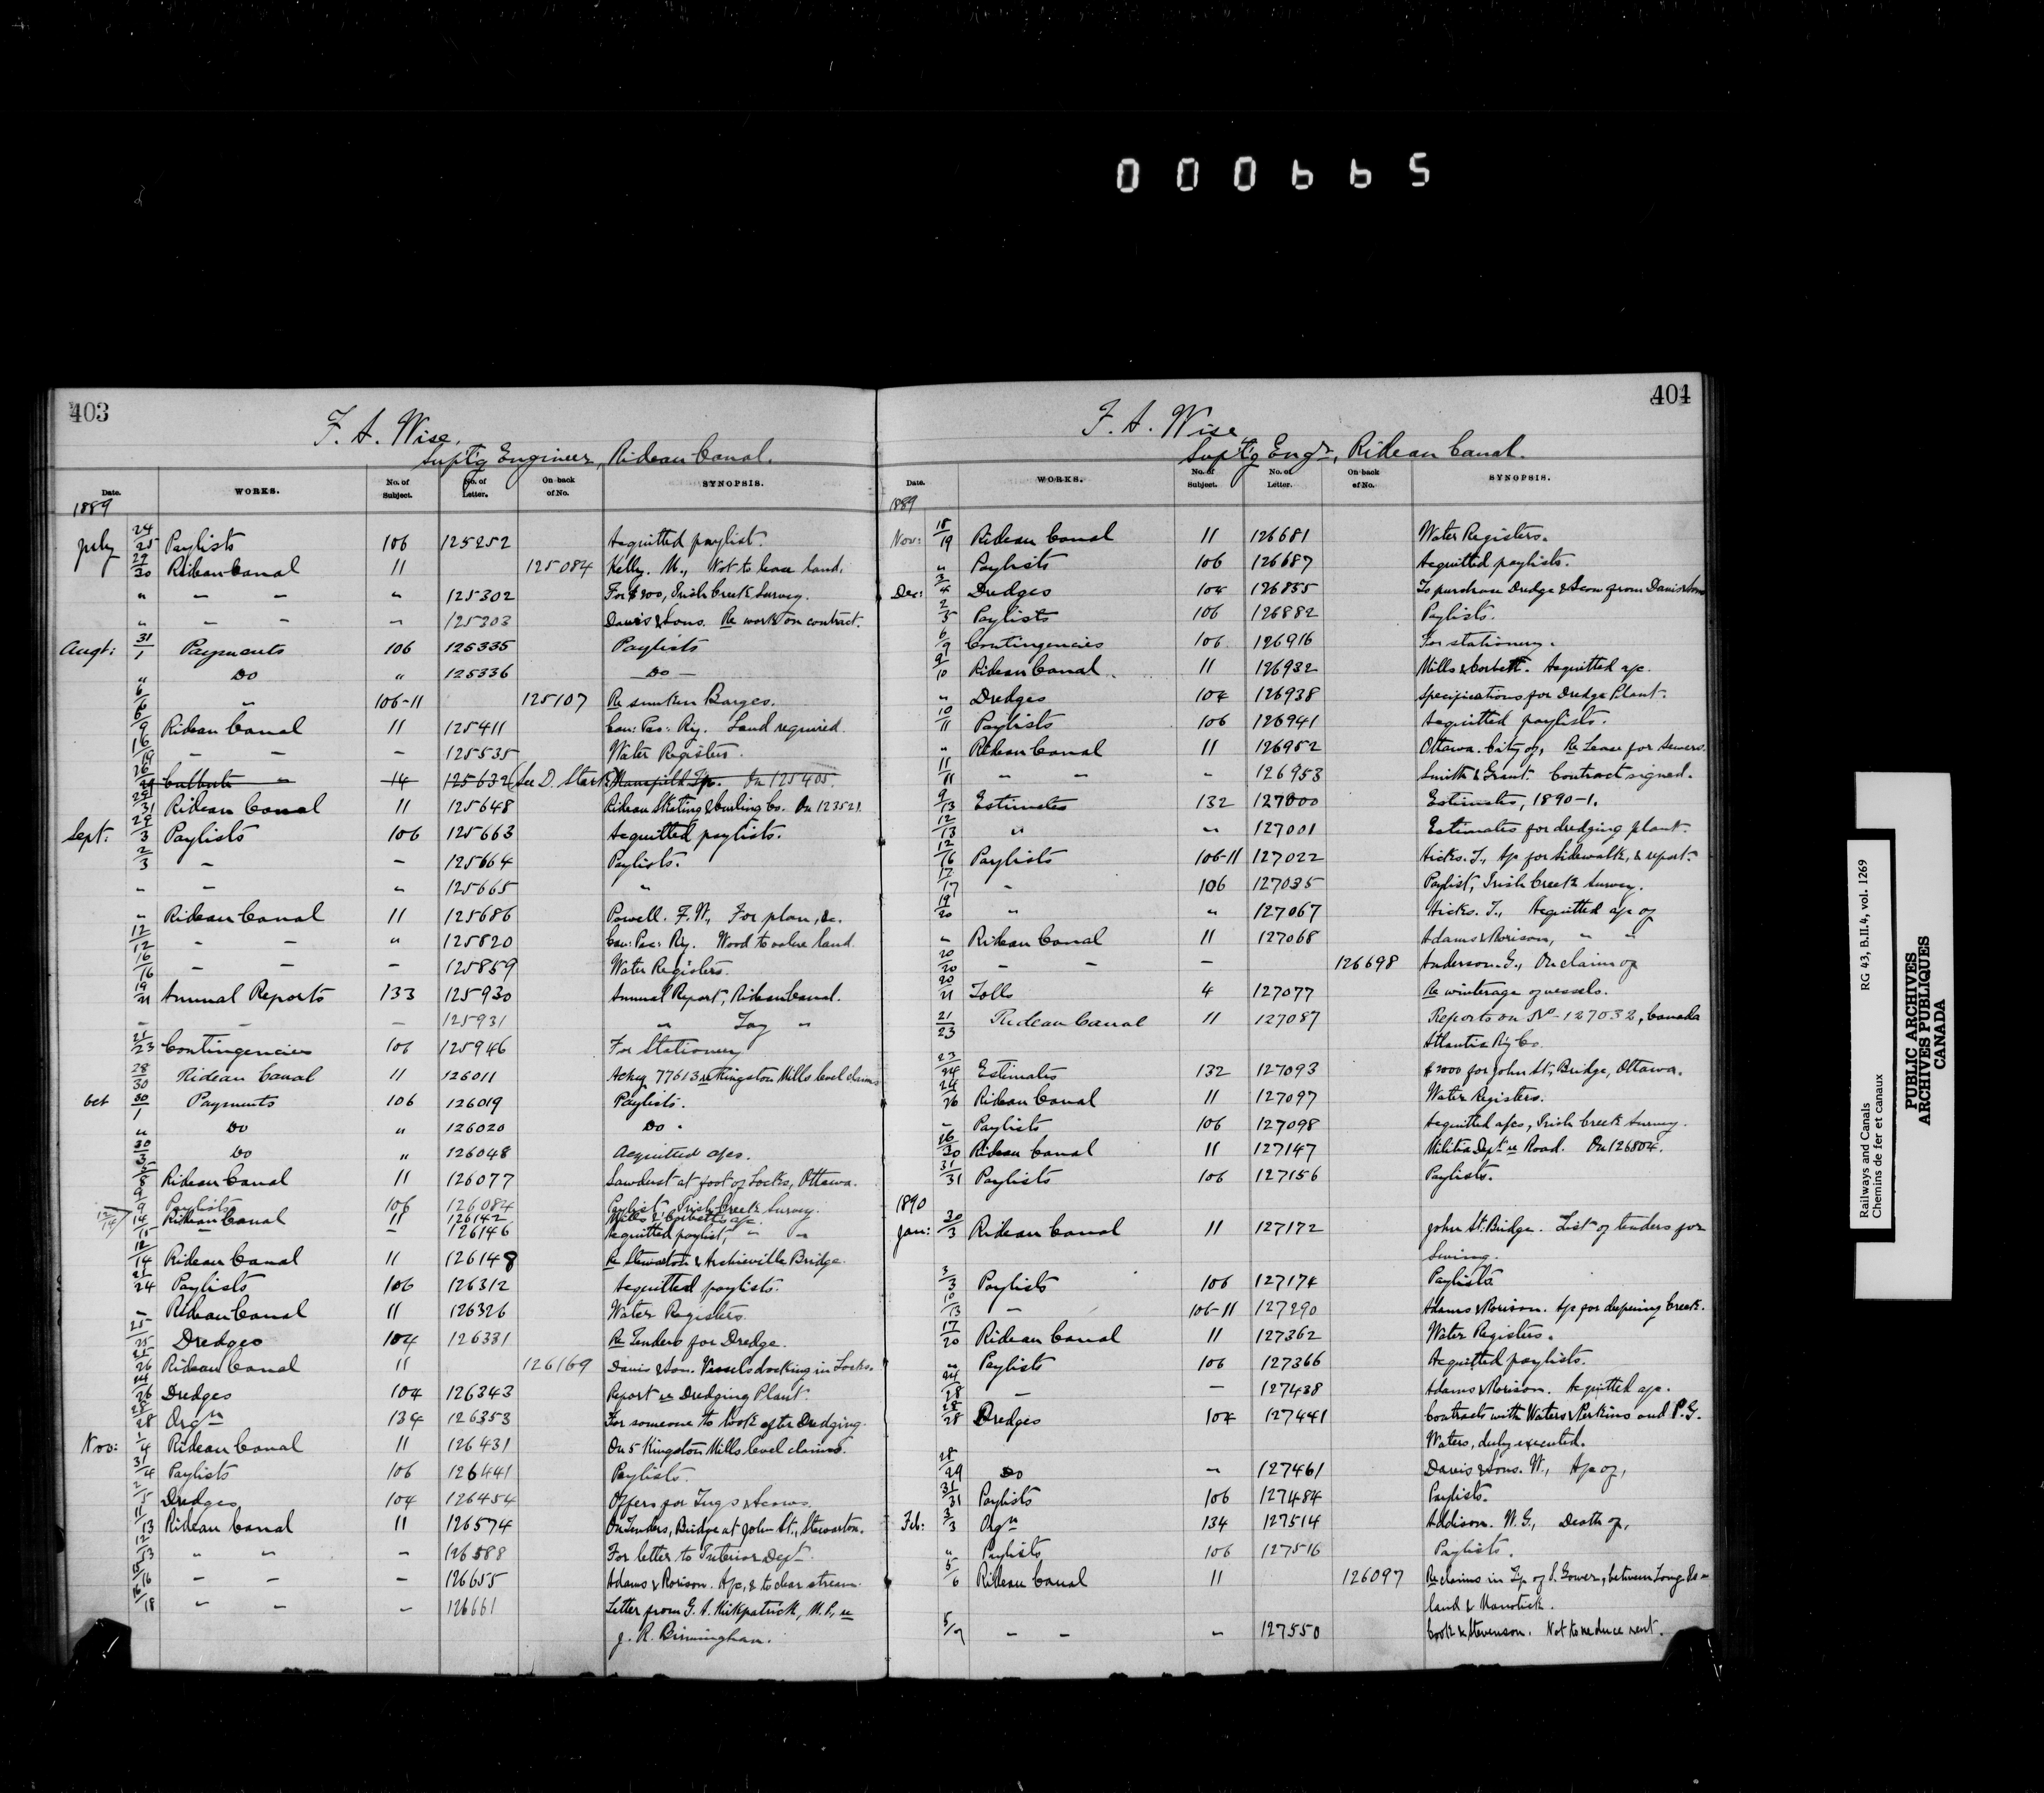 000665
403
F. A. Wise,
Suptg Engineer, Rideau Canal.
Date. WORKS. No. of Subject. No. of Letter. On back of No. SYNOPSIS.
1889
July 24/25 Paylists 106 125252 Acquitted paylist.
29/30 Rideau Canal 11 125084 Kelly. M., Not to lease land.
" - - " 125302 For $200, Irish Creek Survey.
" - - - " 125303 Davis & Sons. Re work on contract.
Augt: 31/1 Payments 106 125335 Paylists
" Do " 125336 - Do -
6/6 " 106-11 125107 Re sunken Barges.
6/9 Rideau Canal 11 125411 Can: Pac: Ry. Land required.
16/19 - - - 125535 Water Registers.
26/29 Culbute " 14 125632 (See D. Stark) Mansfield Tp. On 125405.
29/31 Rideau Canal 11 125648 Rideau Skating & Curling Co. On 123521.
Sept: 29/3 Paylists 106 125663 Acquitted paylists.
2/3 - - 125664 Paylists.
" - " 125665 "
" Rideau Canal 11 125686 Powell. F. W., For plan, &c.
12/12 - - " 125820 Can: Pac: Ry. Wood to value land.
16/16 - - - 125859 Water Registers.
19/21 Annual Reports 133 125930 Annual Report, Rideau Canal.
- - - 125931 " Tay "
21/23 Contingencies 106 125946 For Stationery
28/30 Rideau Canal 11 126011 Ackg 77613 re Kingston Mills level claims
Oct 30/1 Payments 106 126019 Paylists.
" Do " 126020 Do.
30/3 Do " 126048 Acquitted a/cs.
5/8 Rideau Canal 11 126077 Sawdust at foot of Locks, Ottawa.
9/9 Paylists 106 126084 Paylist, Irish Creek Survey.
12/14 14 Rideau Canal 11 126142 Mills & Corbett's a/c.
15 - - 126146 Acquitted paylist, " "
12/14 Rideau Canal 11 126148 Re Stewarton & Archieville Bridge.
21/24 Paylists 106 126312 Acquitted paylists.
- Rideau Canal 11 126326 Water Registers.
25/25 Dredges 104 126331 Re Tenders for Dredge.
25/26 Rideau Canal 11 126169 Davis & Son. Vessels docking in Locks.
24/26 Dredges 104 126343 Report re Dredging Plant.
28/28 Orgn 134 126353 For someone to look after Dredging.
Nov: 1/4 Rideau Canal 11 126431 On 5 Kingston Mills level claims.
31/4 Paylists 106 126441 Paylists.
2/5 Dredges 104 126454 Offers for Tugs & Scows.
11/13 Rideau Canal 11 126574 On Tenders, Bridge at John St., Stewarton.
12/13 " " - 126588 For letter to Interior Dept.
15/16 - - - 126655 Adams & Rorison. A/c, & to clear stream.
16/18 " - " 126661 Letter from G. A. Kirkpatrick, M.P., re
J. R. Birmingham.
404
F. A. Wise
Suptg Engr, Rideau Canal.
Date. WORKS. No. of Subject. No. of Letter. On back of No. SYNOPSIS.
1889
Nov: 18/19 Rideau Canal 11 126681 Water Registers.
" Paylists 106 126687 Acquitted paylists.
Dec: 3/4 Dredges 104 126855 To purchase Dredge & Scow from Davis & Sons
2/5 Paylists 106 126882 Paylists.
6/9 Contingencies 106 126916 For stationery.
9/10 Rideau Canal 11 126932 Mills & Corbett. Acquitted a/c.
" Dredges 104 126938 Specifications for Dredge Plant.
10/11 Paylists 106 126941 Acquitted paylists.
" Rideau Canal 11 126952 Ottawa. City of, Re Lease for Sewers.
11/11 " " - 126953 Smith & Grant. Contract signed.
9/13 Estimates 132 127000 Estimates, 1890-1.
12/13 " " 127001 Estimates for dredging plant.
12/16 Paylists 106-11 127022 Hicks. T., A/c for sidewalk, & report.
17/17 " 106 127035 Paylist, Irish Creek Survey.
19/20 " " 127067 Hicks. T., Acquitted a/c of
" Rideau Canal 11 127068 Adams & Rorison, " "
20/20 - - - 126698 Anderson. G., On claim of
20/21 Tolls 4 127077 Re winterage of vessels.
21/23 Rideau Canal 11 127087 Reports on No - 127032, Canada
Atlantic Ry Co.
23/24 Estimates 132 127093 $2000 for John St. Bridge, Ottawa.
24/26 Rideau Canal 11 127097 Water Registers.
- Paylists 106 127098 Acquitted a/cs, Irish Creek Survey.
26/30 Rideau Canal 11 127147 Militia Dept re Road. On 126804.
31/31 Paylists 106 127156 Paylists.
1890
Jan: 30/3 Rideau Canal 11 127172 John St. Bridge. List of tenders for
Swing.
3/3 Paylists 106 127174 Paylists
10/13 - 106-11 127290 Adams & Rorison. A/c for deepening Creek.
17/20 Rideau Canal 11 127362 Water Registers.
" Paylists 106 127366 Acquitted paylists.
24/28 - - 127438 Adams & Rorison. Acquitted a/c.
28/28 Dredges 104 127441 Contracts with Waters & Perkins and P. G.
Waters, duly executed.
28/29 Do " 127461 Davis & Sons. W., A/c of,
31/31 Paylists 106 127484 Paylists.
Feb: 3/3 Orgn 134 127514 Addison. W. G., Death of,
" Paylists 106 127516 Paylists.
5/6 Rideau Canal 11 126097 Re claims in Tp of S. Gower, between Long Is-
land & Manotick.
5/7 - - " 127550 Cook & Stevenson. Not to reduce rent.
Railways and Canals RG 43, B.II.4, vol. 1269
Chemins de fer et canaux
PUBLIC ARCHIVES
ARCHIVES PUBLIQUES
CANADA